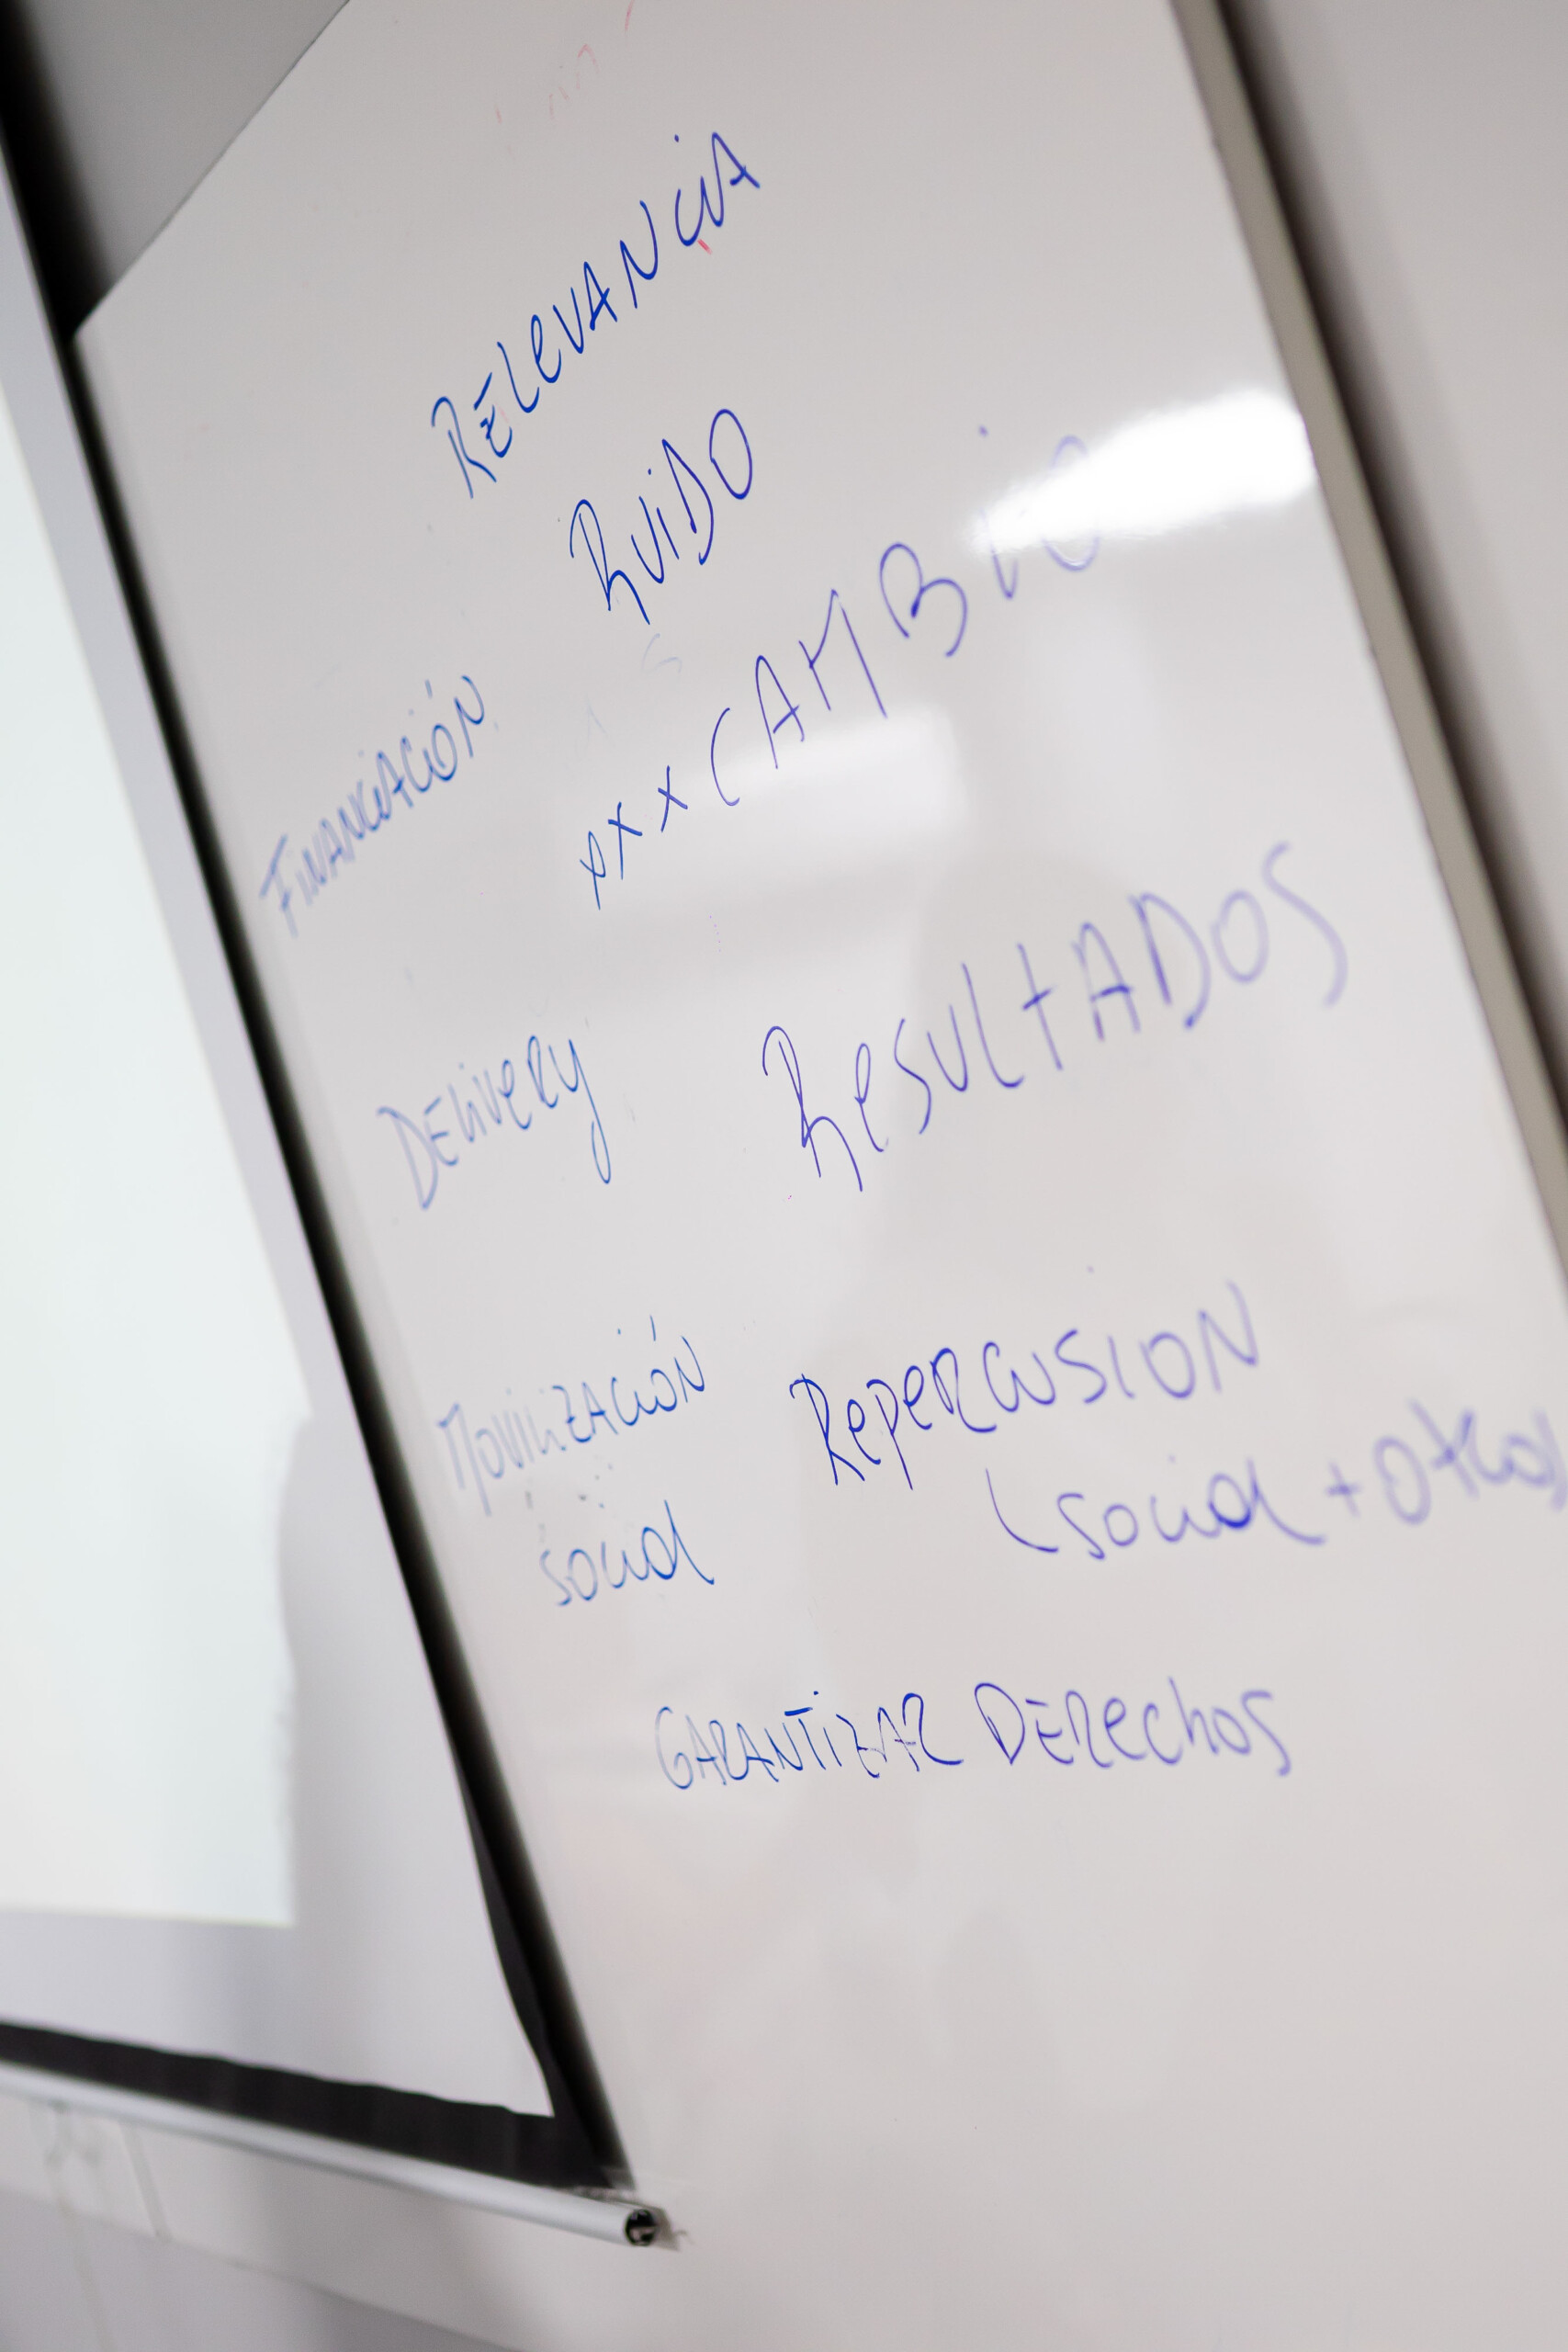 RELEVANCIA
RUIDO
xxx CAMBiO
FINANCIACIÓN
RESULTADOS
DELIVERY
MOVILIZACIÓN
social
REPERCUSION
social + otros
GARANTIZAR DERECHOS